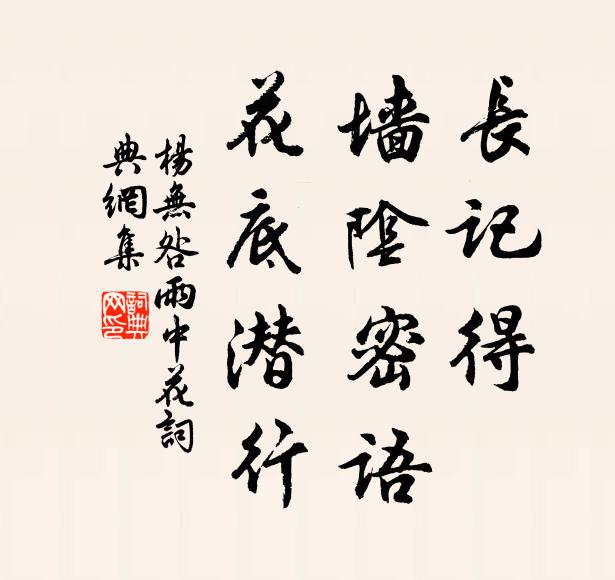 長记得
墙陰密语
花底潜行
楊無咎雨中花詞
典網集
詞典
网印